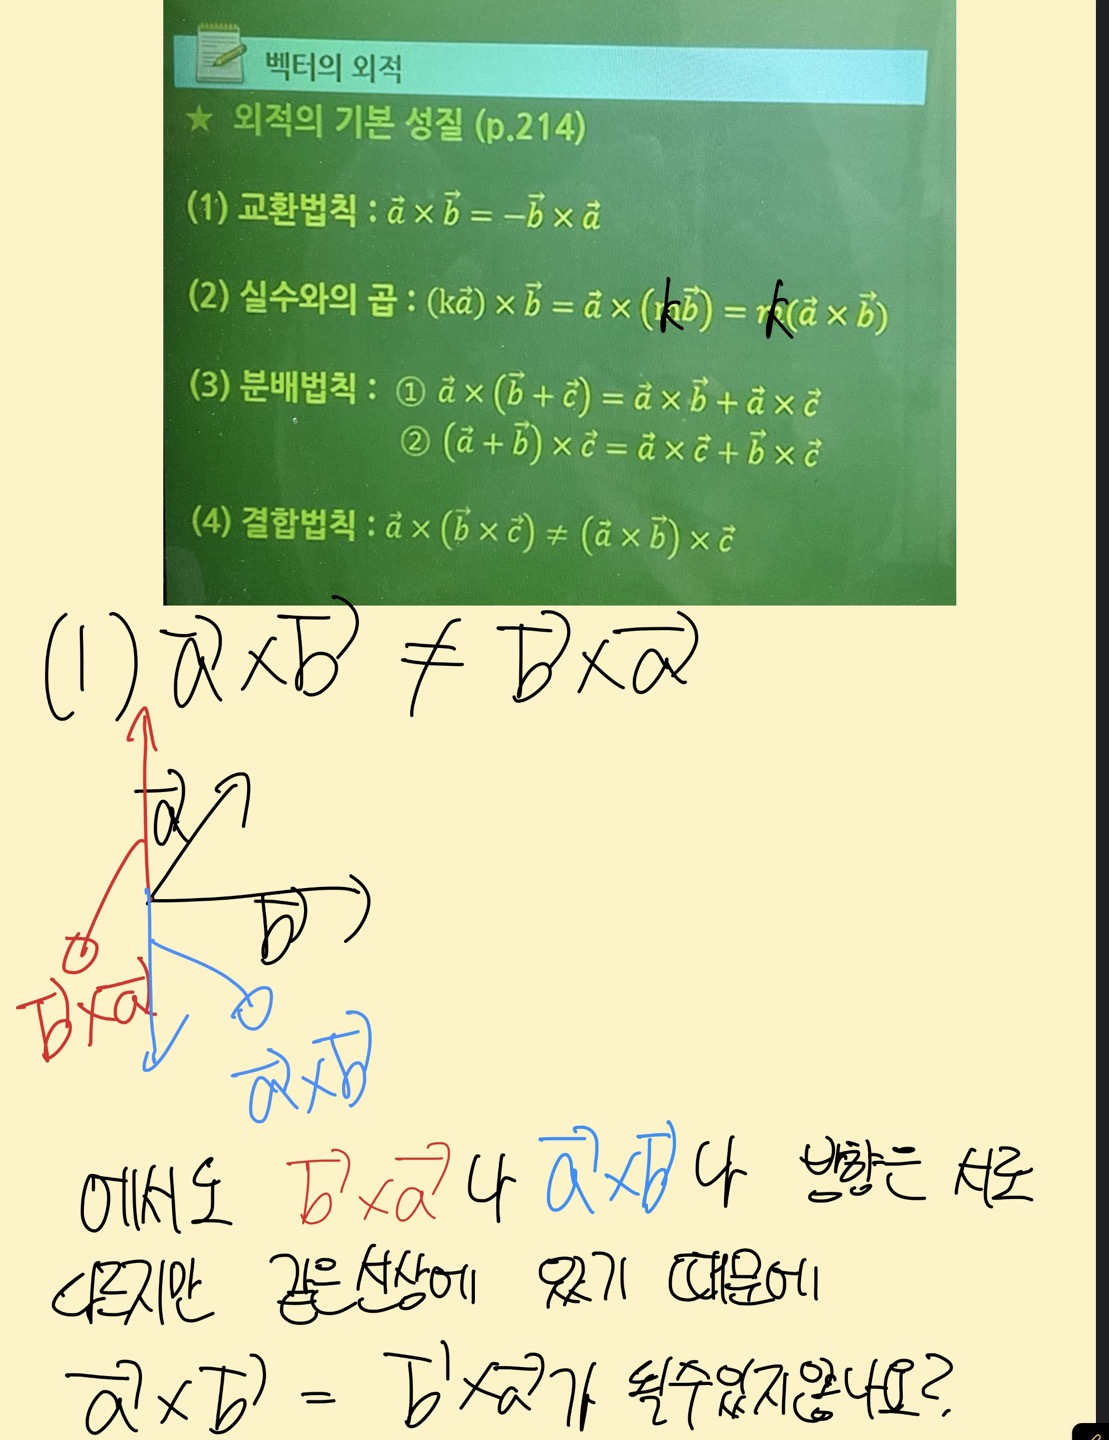 벡터의 외적
★ 외적의 기본 성질 (p.214)
(1) 교환법칙 : a⃗ × b⃗ = −b⃗ × a⃗
(2) 실수와의 곱 : (ka⃗) × b⃗ = a⃗ × (kb⃗) = k(a⃗ × b⃗)
(3) 분배법칙 : ① a⃗ × (b⃗ + c⃗) = a⃗ × b⃗ + a⃗ × c⃗
② (a⃗ + b⃗) × c⃗ = a⃗ × c⃗ + b⃗ × c⃗
(4) 결합법칙 : a⃗ × (b⃗ × c⃗) ≠ (a⃗ × b⃗) × c⃗
(1) a⃗ × b⃗ ≠ b⃗ × a⃗
a⃗
b⃗
b⃗ × a⃗
a⃗ × b⃗
에서도 b⃗ × a⃗ 나 a⃗ × b⃗ 나 방향은 서로
다르지만 같은선상에 있기 때문에
a⃗ × b⃗ = b⃗ × a⃗가 될수있지않나요?